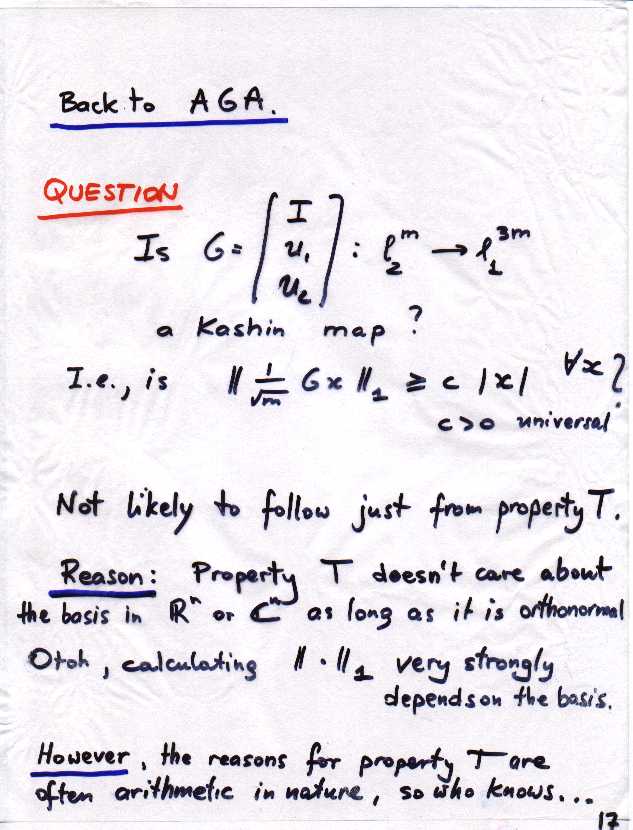 Back to AGA.
QUESTION
Is G = [ I u₁ u₂ ] : ℓ₂ᵐ → ℓ₁³ᵐ
a Kashin map ?
I.e., is ‖ 1/√m Gx ‖₁ ≥ c |x| ∀x ?
c>0 universal
Not likely to follow just from property T.
Reason: Property T doesn't care about
the basis in ℝⁿ or ℂⁿ as long as it is orthonormal
Otoh, calculating ‖·‖₁ very strongly
depends on the basis.
However, the reasons for property T are
often arithmetic in nature, so who knows...
17